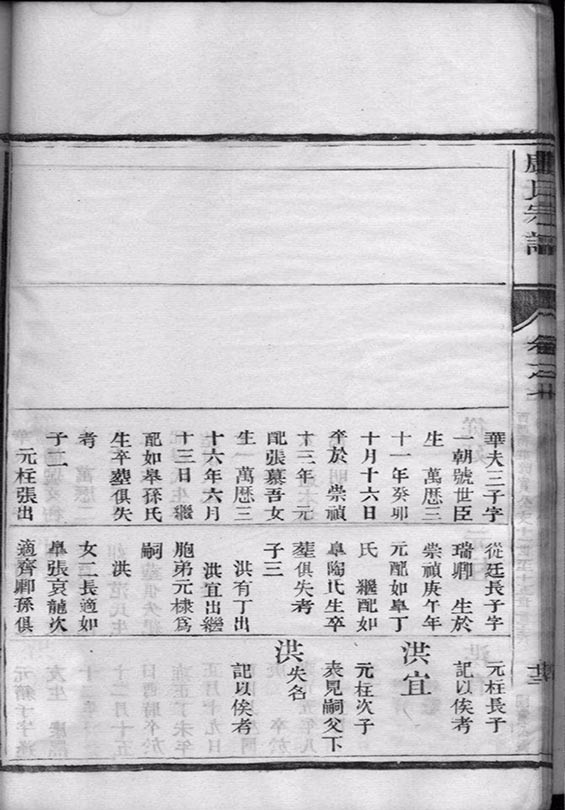 盧氏宗譜
卷之廿
華夫三子字
一朝號世臣
生 萬厯三
十一年癸卯
十月十六日
卒於 崇禎
十三年 元
配張慕吾女
生 萬厯三
十六年六月
十三日 繼
配如皋孫氏
生卒葬俱失
考
子二
元枉張出
從廷長子字
瑞卿 生於
崇禎庚午年
元配如皋丁
氏 繼配如
皋陶氏生卒
葬俱失考
子三
洪有丁出
洪宜出繼
胞弟元棣爲
嗣 洪
女二長適如
皋張哀龍次
適齊 孫俱
元枉長子
記以俟考
洪宜
元枉次子
表見嗣父下
洪失名
記以俟考